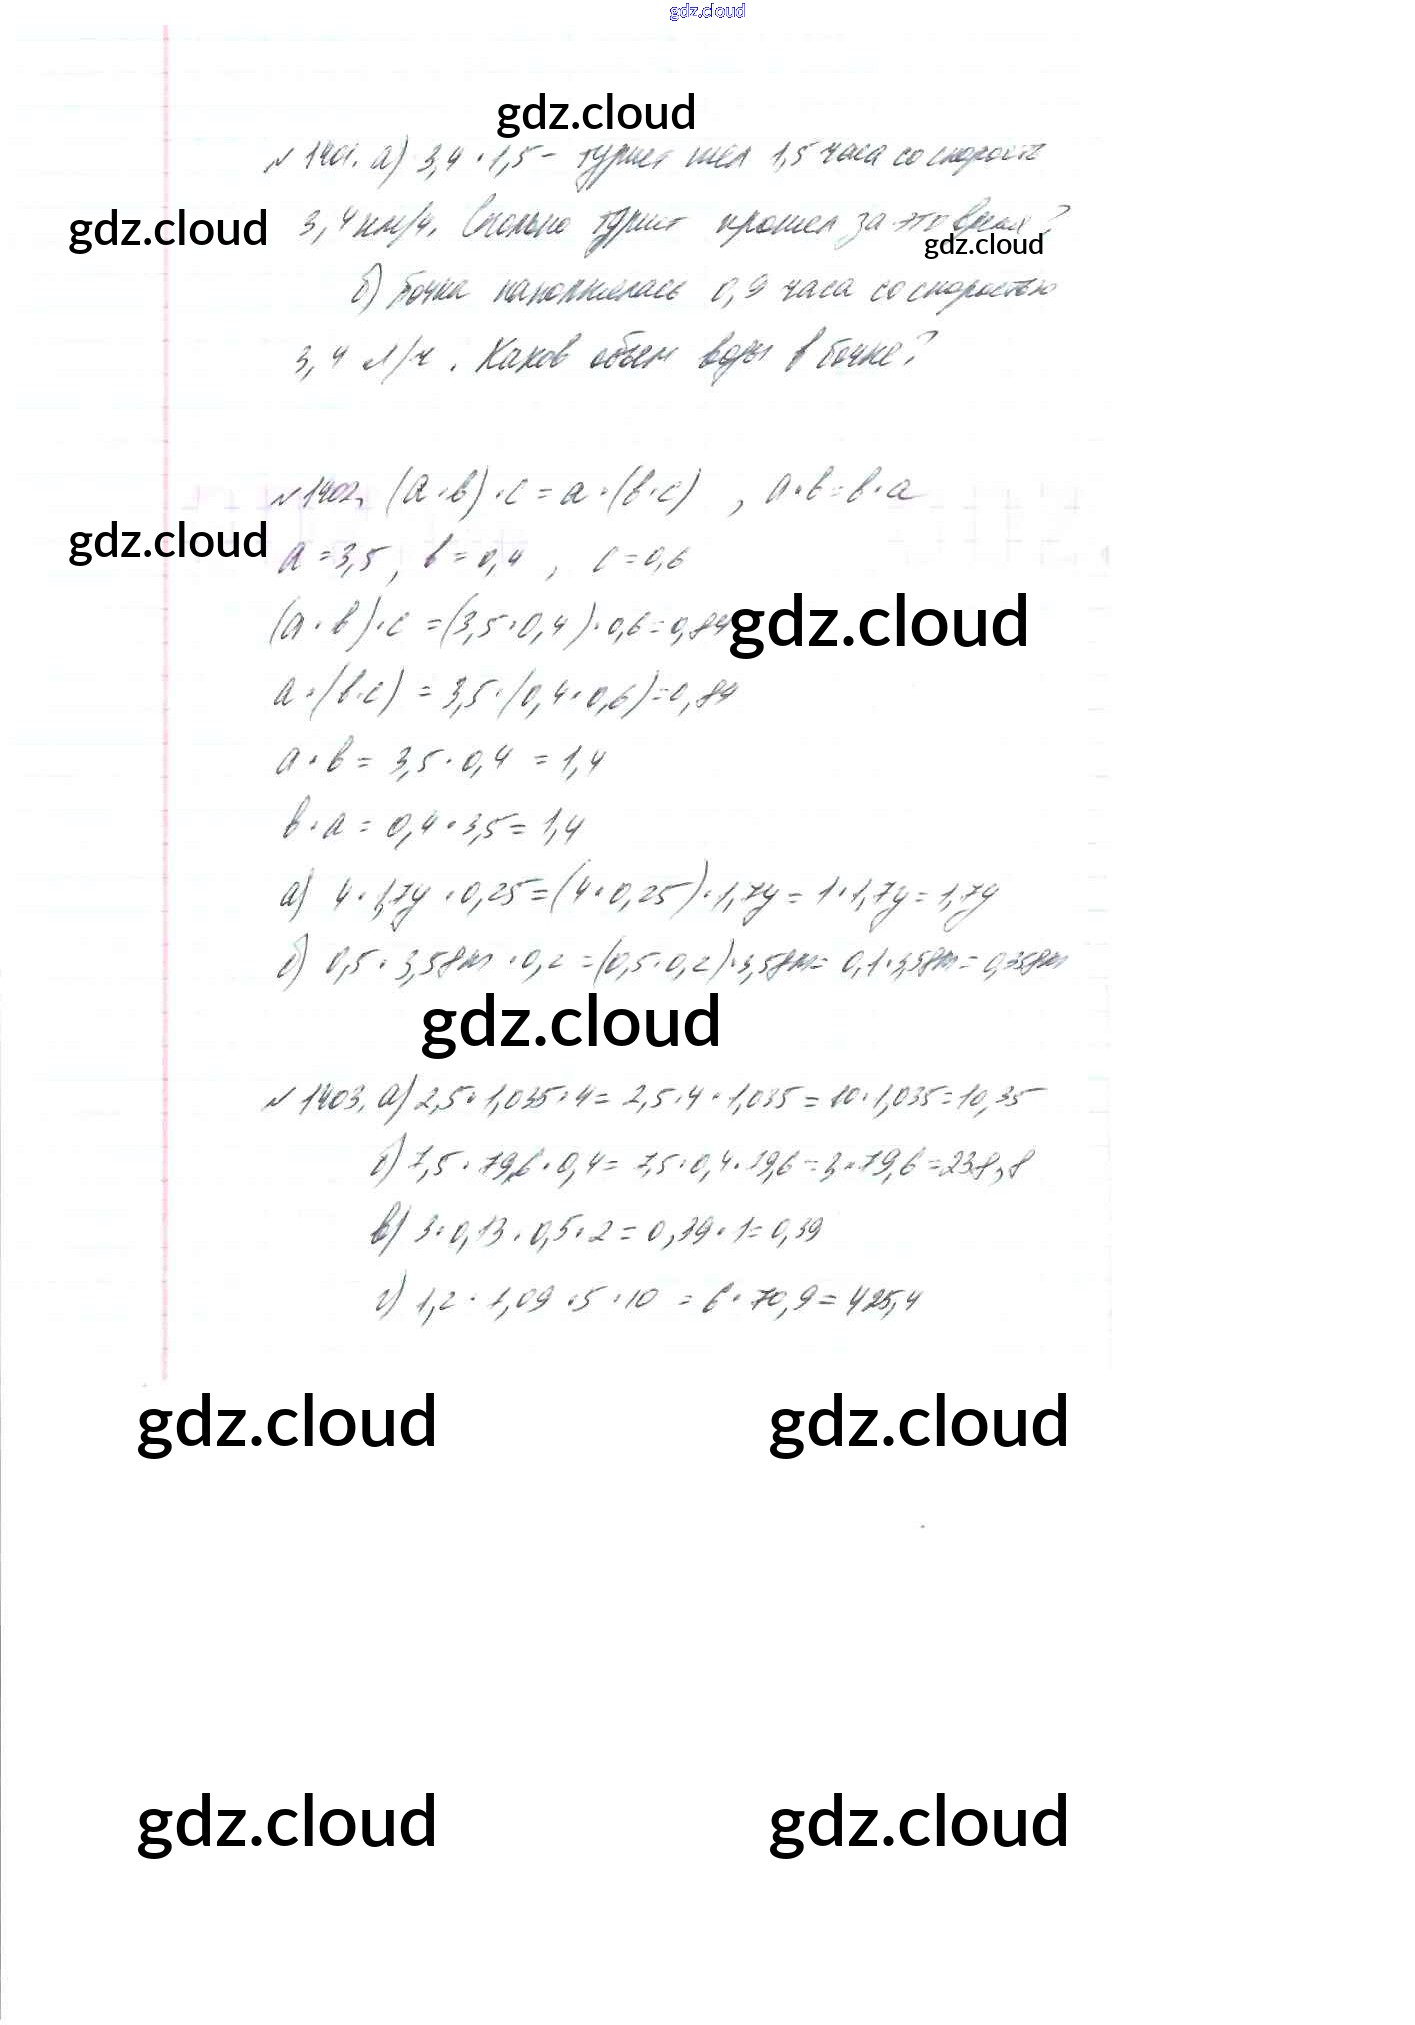 gdz.cloud
gdz.cloud
№ 1401. а) 3,4 · 1,5 – турист шел 1,5 часа со скорость
gdz.cloud
3,4 км/ч. Сколько турист прошел за это время?
gdz.cloud
б) Бочка наполнялась 0,9 часа со скоростью
3,4 л/ч. Каков объем воды в бочке?
№ 1402, (a · b) · c = a · (b · c) , a · b = b · a
gdz.cloud
a = 3,5, b = 0,4 , c = 0,6
(a · b) · c = (3,5 · 0,4) · 0,6 = 0,84
gdz.cloud
a · (b · c) = 3,5 · (0,4 · 0,6) = 0,84
a · b = 3,5 · 0,4 = 1,4
b · a = 0,4 · 3,5 = 1,4
а) 4 · 1,7y · 0,25 = (4 · 0,25) · 1,7y = 1 · 1,7y = 1,7y
б) 0,5 · 3,58m · 0,2 = (0,5 · 0,2) · 3,58m = 0,1 · 3,58m = 0,358m
gdz.cloud
№ 1403. а) 2,5 · 1,035 · 4 = 2,5 · 4 · 1,035 = 10 · 1,035 = 10,35
б) 7,5 · 79,6 · 0,4 = 7,5 · 0,4 · 79,6 = 3 · 79,6 = 238,8
в) 3 · 0,13 · 0,5 · 2 = 0,39 · 1 = 0,39
г) 1,2 · 1,09 · 5 · 10 = 6 · 70,9 = 425,4
gdz.cloud gdz.cloud
gdz.cloud gdz.cloud